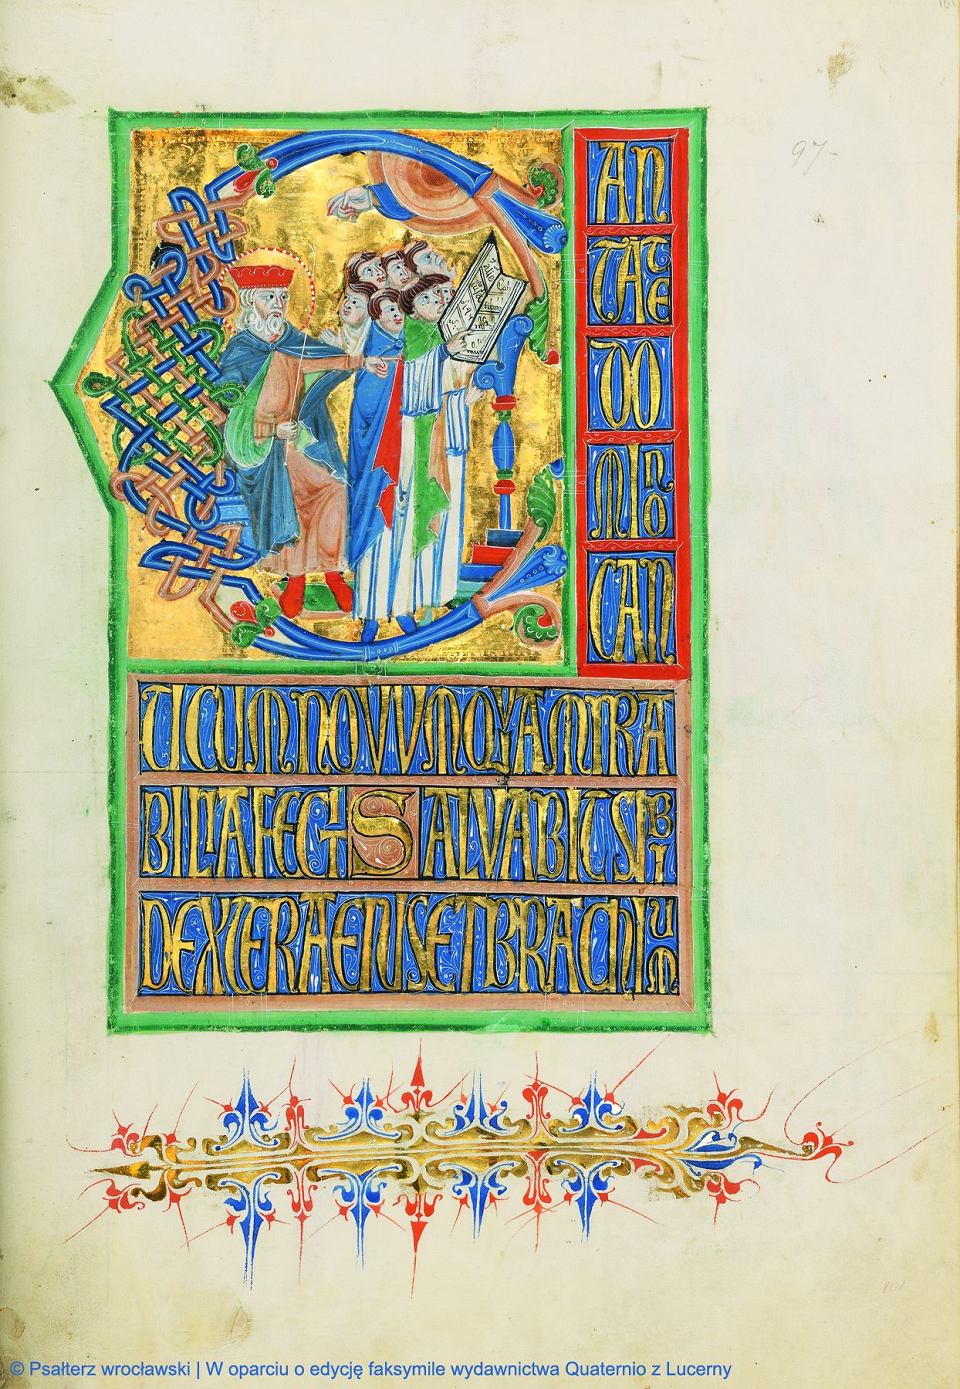 97-
C
AN
TATE
DO
MINO
CAN
TICUM NOVUM QUIA MIRA
BILIA FECIT SALVABIT SIBI
DEXTERA EIUS ET BRACHIUM
101
© Psałterz wrocławski | W oparciu o edycję faksymile wydawnictwa Quaternio z Lucerny